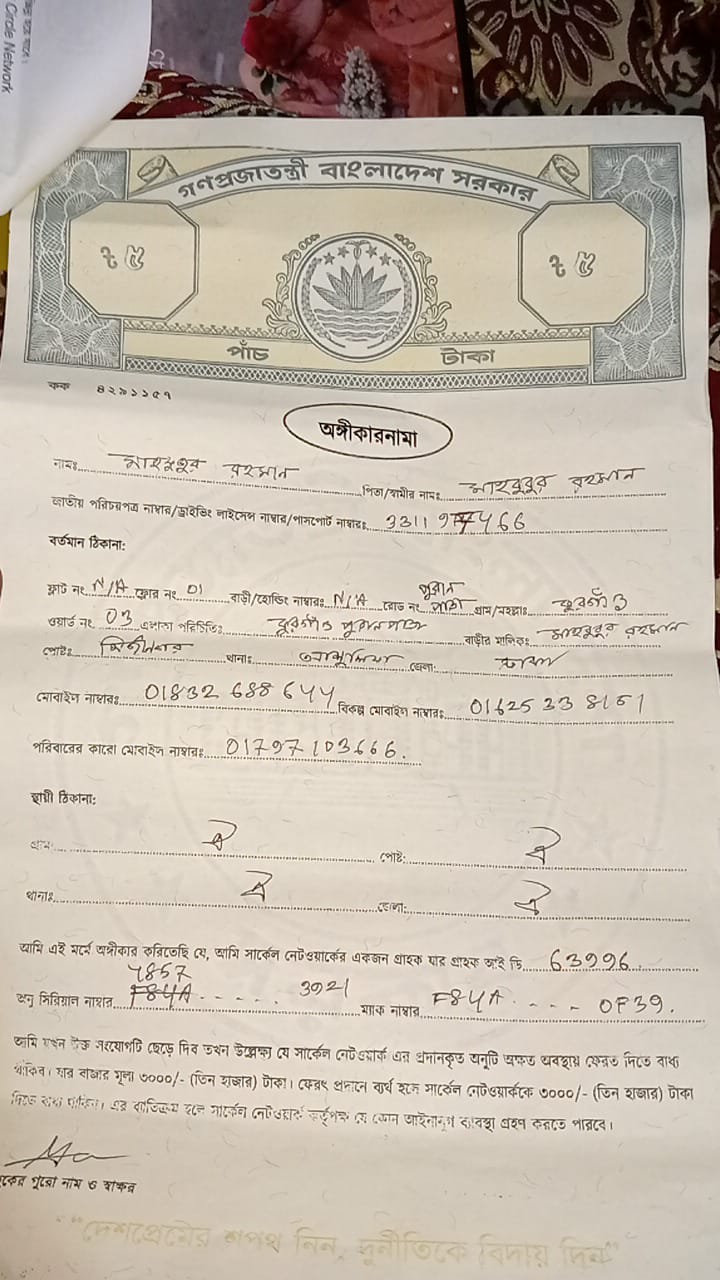 Circle Network
গণপ্রজাতন্ত্রী বাংলাদেশ সরকার
৳ ৫ ৳ ৫
পাঁচ টাকা
কক ৪২৯১১৫৭
অঙ্গীকারনামা
নামঃ মাহবুবুর রহমান পিতা/স্বামীর নামঃ মাহবুবুর রহমান
জাতীয় পরিচয়পত্র নাম্বার/ড্রাইভিং লাইসেন্স নাম্বার/পাসপোর্ট নাম্বারঃ 3311 97 7466
বর্তমান ঠিকানা:
ফ্লাট নং N/A ফ্লোর নং 01 বাড়ী/হোল্ডিং নাম্বারঃ N/A রোড নং পুরান পাড়া গ্রাম/মহল্লাঃ
ওয়ার্ড নং 03 এলাকা পরিচিতিঃ পুরানপাড়া বাড়ীর মালিকঃ মাহবুবুর রহমান
পোষ্টঃ থানাঃ আশুলিয়া জেলা: ঢাকা
মোবাইল নাম্বারঃ 01832 688 644 বিকল্প মোবাইল নাম্বারঃ 01625 33 8151
পরিবারের কারো মোবাইল নাম্বারঃ 01797103666.
স্থায়ী ঠিকানা:
গ্রাম: ঐ পোষ্ট: ঐ
থানাঃ ঐ জেলা: ঐ
আমি এই মর্মে অঙ্গীকার করিতেছি যে, আমি সার্কেল নেটওয়ার্কের একজন গ্রাহক যার গ্রাহক আই ডি 63996
4857
অনু সিরিয়াল নাম্বার F84A 3921 ম্যাক নাম্বার F84A OF39.
আমি যখন উক্ত সংযোগটি ছেড়ে দিব তখন উল্লেক্ষ্য যে সার্কেল নেটওয়ার্ক এর প্রদানকৃত অনুটি অক্ষত অবস্থায় ফেরত দিতে বাধ্য
থাকিব। যার বাজার মূল্য ৩০০০/- (তিন হাজার) টাকা। ফেরৎ প্রদানে ব্যর্থ হলে সার্কেল নেটওয়ার্ককে ৩০০০/- (তিন হাজার) টাকা
দিতে বাধ্য থাকিব। এর ব্যতিক্রম হলে সার্কেল নেটওয়ার্ক কর্তৃপক্ষ যে কোন আইনানুগ ব্যবস্থা গ্রহণ করতে পারবে।
পুরো নাম ও স্বাক্ষর
"দেশপ্রেমের শপথ নিন, দুর্নীতিকে বিদায় দিন"